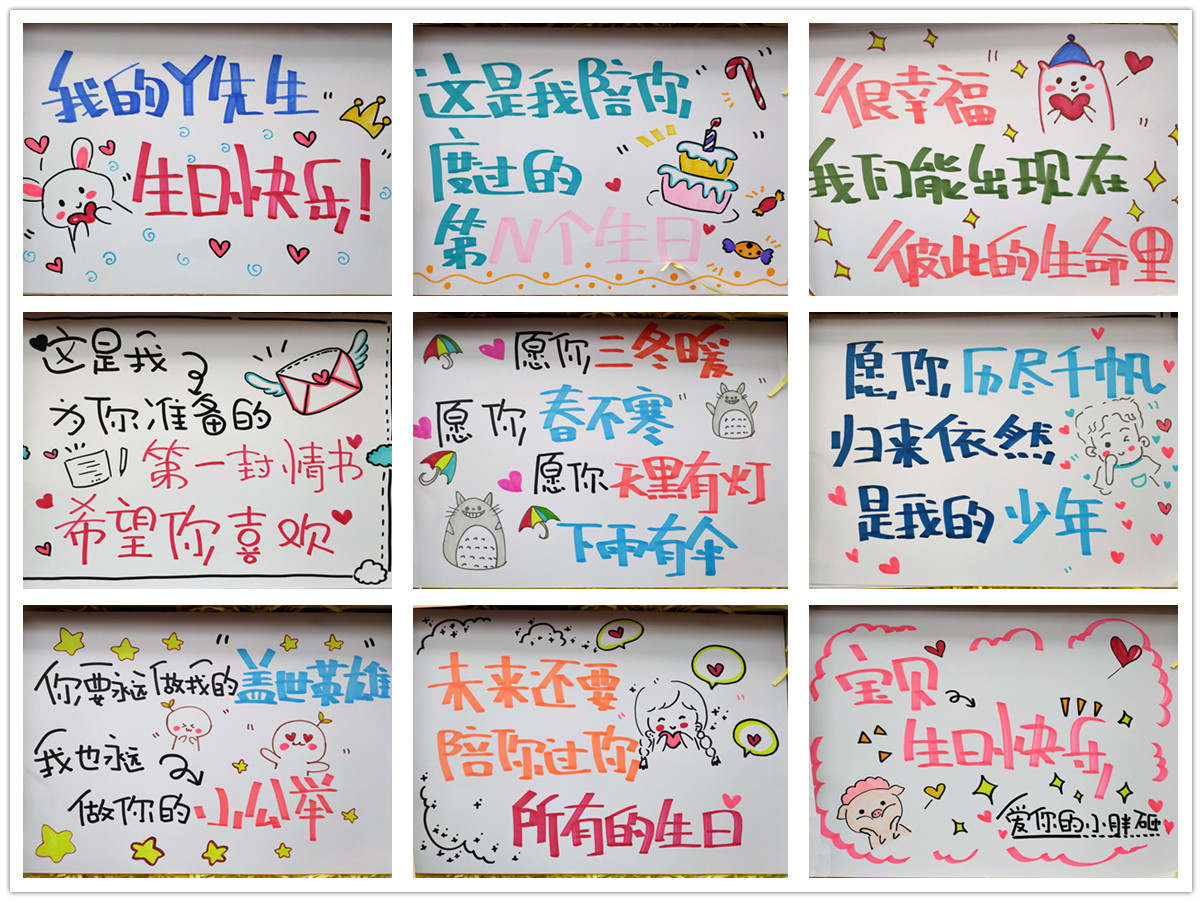 我的Y先生
生日快乐!
这是我陪你
度过的
第N个生日
很幸福
我们能出现在
彼此的生命里
这是我
为你准备的
第一封情书
希望你喜欢
愿你三冬暖
愿你春不寒
愿你天黑有灯
下雨有伞
愿你历尽千帆
归来依然
是我的少年
你要永远做我的盖世英雄
我也永远
做你的小公举
未来还要
陪你过你
所有的生日
宝贝
生日快乐
爱你的小胖砸